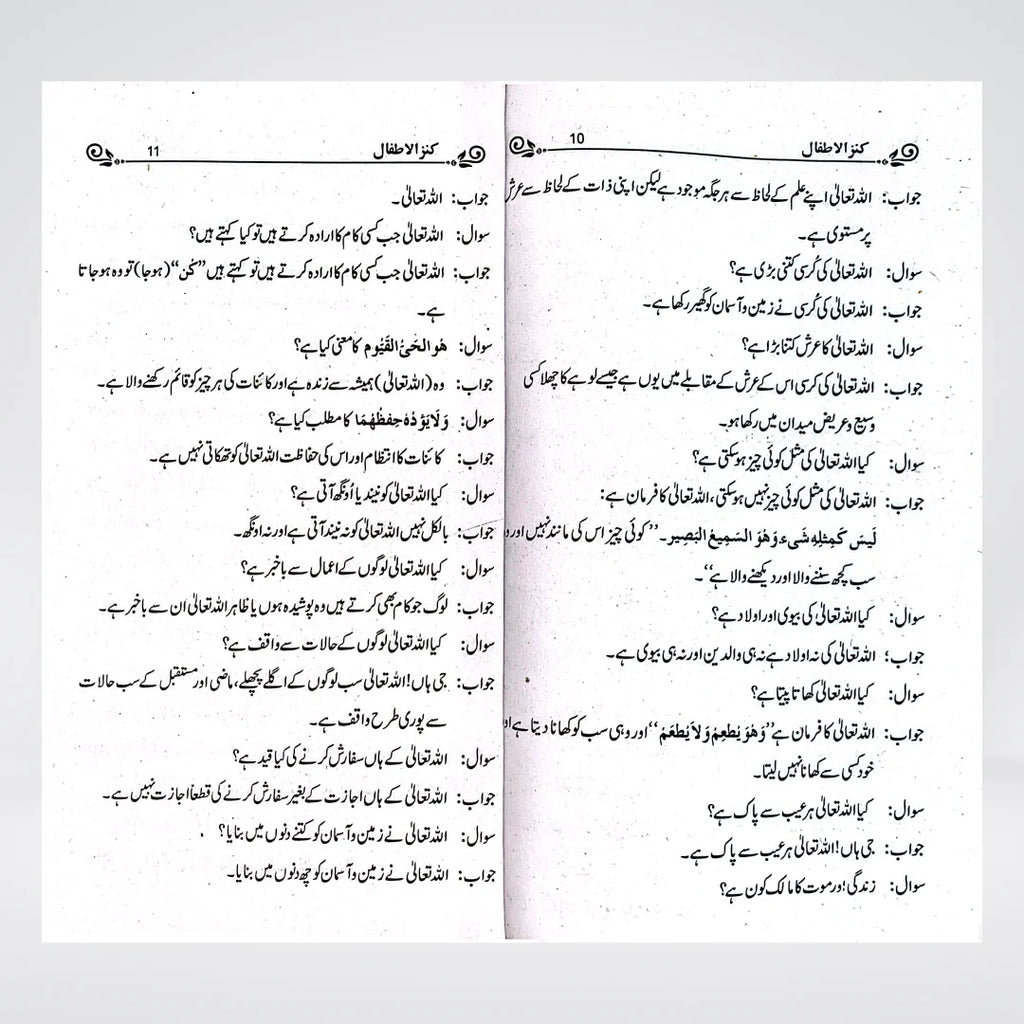 کنز الاطفال 10
جواب: اللہ تعالیٰ اپنے علم کے لحاظ سے ہر جگہ موجود ہے لیکن اپنی ذات کے لحاظ سے عرش
پر مستوی ہے۔
سوال: اللہ تعالیٰ کی کُرسی کتنی بڑی ہے؟
جواب: اللہ تعالیٰ کی کُرسی نے زمین و آسمان کو گھیر رکھا ہے۔
سوال: اللہ تعالیٰ کا عرش کتنا بڑا ہے؟
جواب: اللہ تعالیٰ کی کرسی اس کے عرش کے مقابلے میں یوں ہے جیسے لوہے کا چھلا کسی
وسیع و عریض میدان میں رکھا ہو۔
سوال: کیا اللہ تعالیٰ کی مثل کوئی چیز ہو سکتی ہے؟
جواب: اللہ تعالیٰ کی مثل کوئی چیز نہیں ہو سکتی، اللہ تعالیٰ کا فرمان ہے:
لَیسَ کَمِثلِهِ شَیء وَهُوَ السَمِیعُ البَصِیر۔ ’’کوئی چیز اس کی مانند نہیں اور و
سب کچھ سننے والا اور دیکھنے والا ہے‘‘۔
سوال: کیا اللہ تعالیٰ کی بیوی اور اولاد ہے؟
جواب: اللہ تعالیٰ کی نہ اولاد ہے نہ ہی والدین اور نہ ہی بیوی ہے۔
سوال: کیا اللہ تعالیٰ کھاتا پیتا ہے؟
جواب: اللہ تعالیٰ کا فرمان ہے ’’وَهُوَ یُطعِمُ وَلَا یُطعَمُ‘‘ اور وہی سب کو کھانا دیتا ہے او
خود کسی سے کھانا نہیں لیتا۔
سوال: کیا اللہ تعالیٰ ہر عیب سے پاک ہے؟
جواب: جی ہاں! اللہ تعالیٰ ہر عیب سے پاک ہے۔
سوال: زندگی اور موت کا مالک کون ہے؟
کنز الاطفال 11
جواب: اللہ تعالیٰ۔
سوال: اللہ تعالیٰ جب کسی کام کا ارادہ کرتے ہیں تو کیا کہتے ہیں؟
جواب: اللہ تعالیٰ جب کسی کام کا ارادہ کرتے ہیں تو کہتے ہیں ’’کُن‘‘ (ہو جا) تو وہ ہو جاتا
ہے۔
سوال: هُوَ الحَیُّ القَیُّوم کا معنی کیا ہے؟
جواب: وہ (اللہ تعالیٰ) ہمیشہ سے زندہ ہے اور کائنات کی ہر چیز کو قائم رکھنے والا ہے۔
سوال: وَلَا یَؤدُهُ حِفظُهُمَا کا مطلب کیا ہے؟
جواب: کائنات کا انتظام اور اس کی حفاظت اللہ تعالیٰ کو تھکاتی نہیں ہے۔
سوال: کیا اللہ تعالیٰ کو نیند یا اُونگھ آتی ہے؟
جواب: بالکل نہیں اللہ تعالیٰ کو نہ نیند آتی ہے اور نہ اونگھ۔
سوال: کیا اللہ تعالیٰ لوگوں کے اعمال سے باخبر ہے؟
جواب: لوگ جو کام بھی کرتے ہیں وہ پوشیدہ ہوں یا ظاہر اللہ تعالیٰ ان سے باخبر ہے۔
سوال: کیا اللہ تعالیٰ لوگوں کے حالات سے واقف ہے؟
جواب: جی ہاں! اللہ تعالیٰ سب لوگوں کے اگلے پچھلے، ماضی اور مستقبل کے سب حالات
سے پوری طرح واقف ہے۔
سوال: اللہ تعالیٰ کے ہاں سفارش کرنے کی کیا قید ہے؟
جواب: اللہ تعالیٰ کے ہاں اجازت کے بغیر سفارش کرنے کی قطعاً اجازت نہیں ہے۔
سوال: اللہ تعالیٰ نے زمین و آسمان کو کتنے دنوں میں بنایا؟
جواب: اللہ تعالیٰ نے زمین و آسمان کو چھ دنوں میں بنایا۔